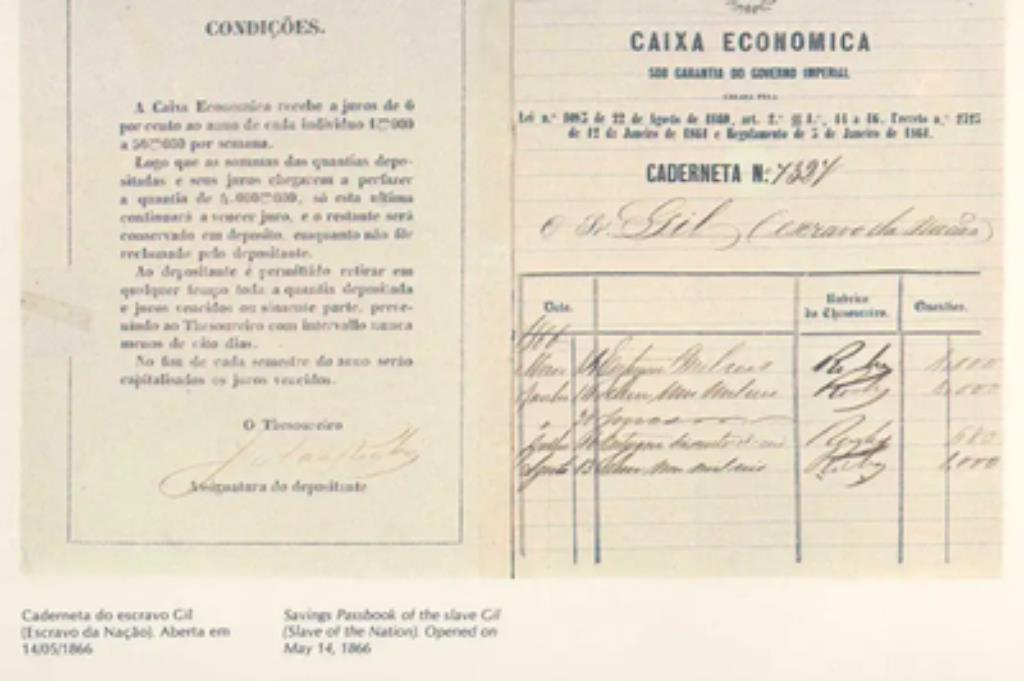 CONDIÇÕES.
A Caixa Economica recebe a juros de 6
por cento ao anno de cada individuo 1$000
a 50$000 por semana.
Logo que as sommas das quantias depo-
sitadas e seus juros chegarem a perfazer
a quantia de 4.000$000, só esta ultima
continuará a vencer juro, e o restante será
conservado em deposito, emquanto não fôr
reclamado pelo depositante.
Ao depositante é permittido retirar em
qualquer tempo toda a quantia depositada
e juros vencidos ou sómente parte, preve-
nindo ao Thesoureiro com intervallo nunca
menos de oito dias.
No fim de cada semestre do anno serão
capitalisados os juros vencidos.
O Thesoureiro
Assignatura do depositante
CAIXA ECONOMICA
SOB GARANTIA DO GOVERNO IMPERIAL
CREADA PELA
de 12 de Janeiro de 1861 e Regulamento de
CADERNETA N.º 7327
O Sr. Gil (escravo da Nação)
Data. Rubrica Quantias.
do Thesoureiro.
1866
Maio 14 Entregou Mil reis 1.000
Junho 1.000
Julho 680
1.000
Caderneta do escravo Gil
(Escravo da Nação). Aberta em
14/05/1866
Savings Passbook of the slave Gil
(Slave of the Nation). Opened on
May 14, 1866